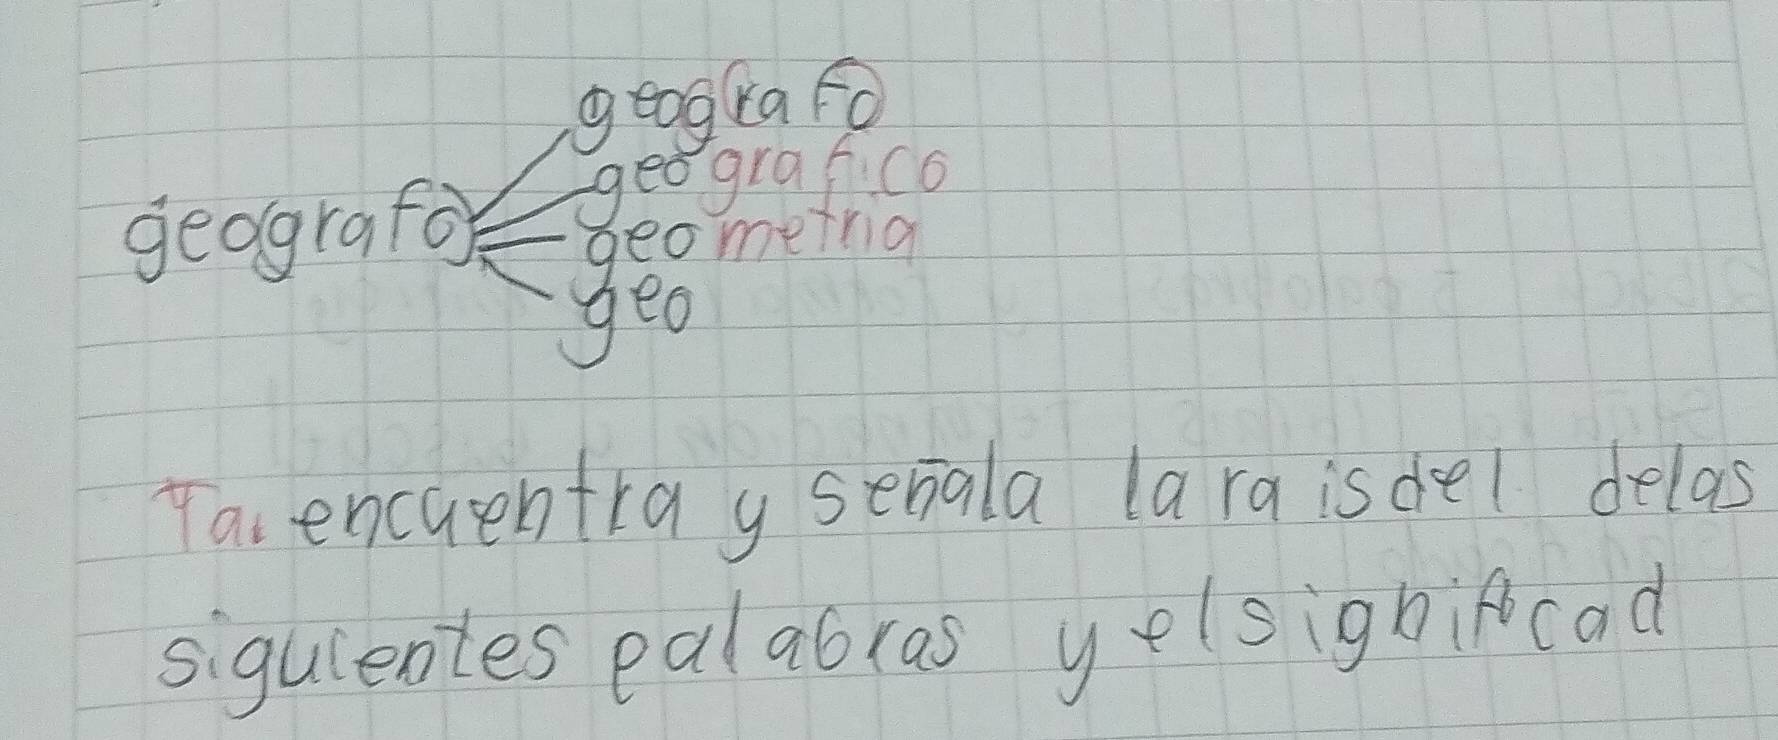 geografo
geografico
geografo geometria
geo
Ta. encuentra y señala la rais del delas
siguientes palabras y el significad